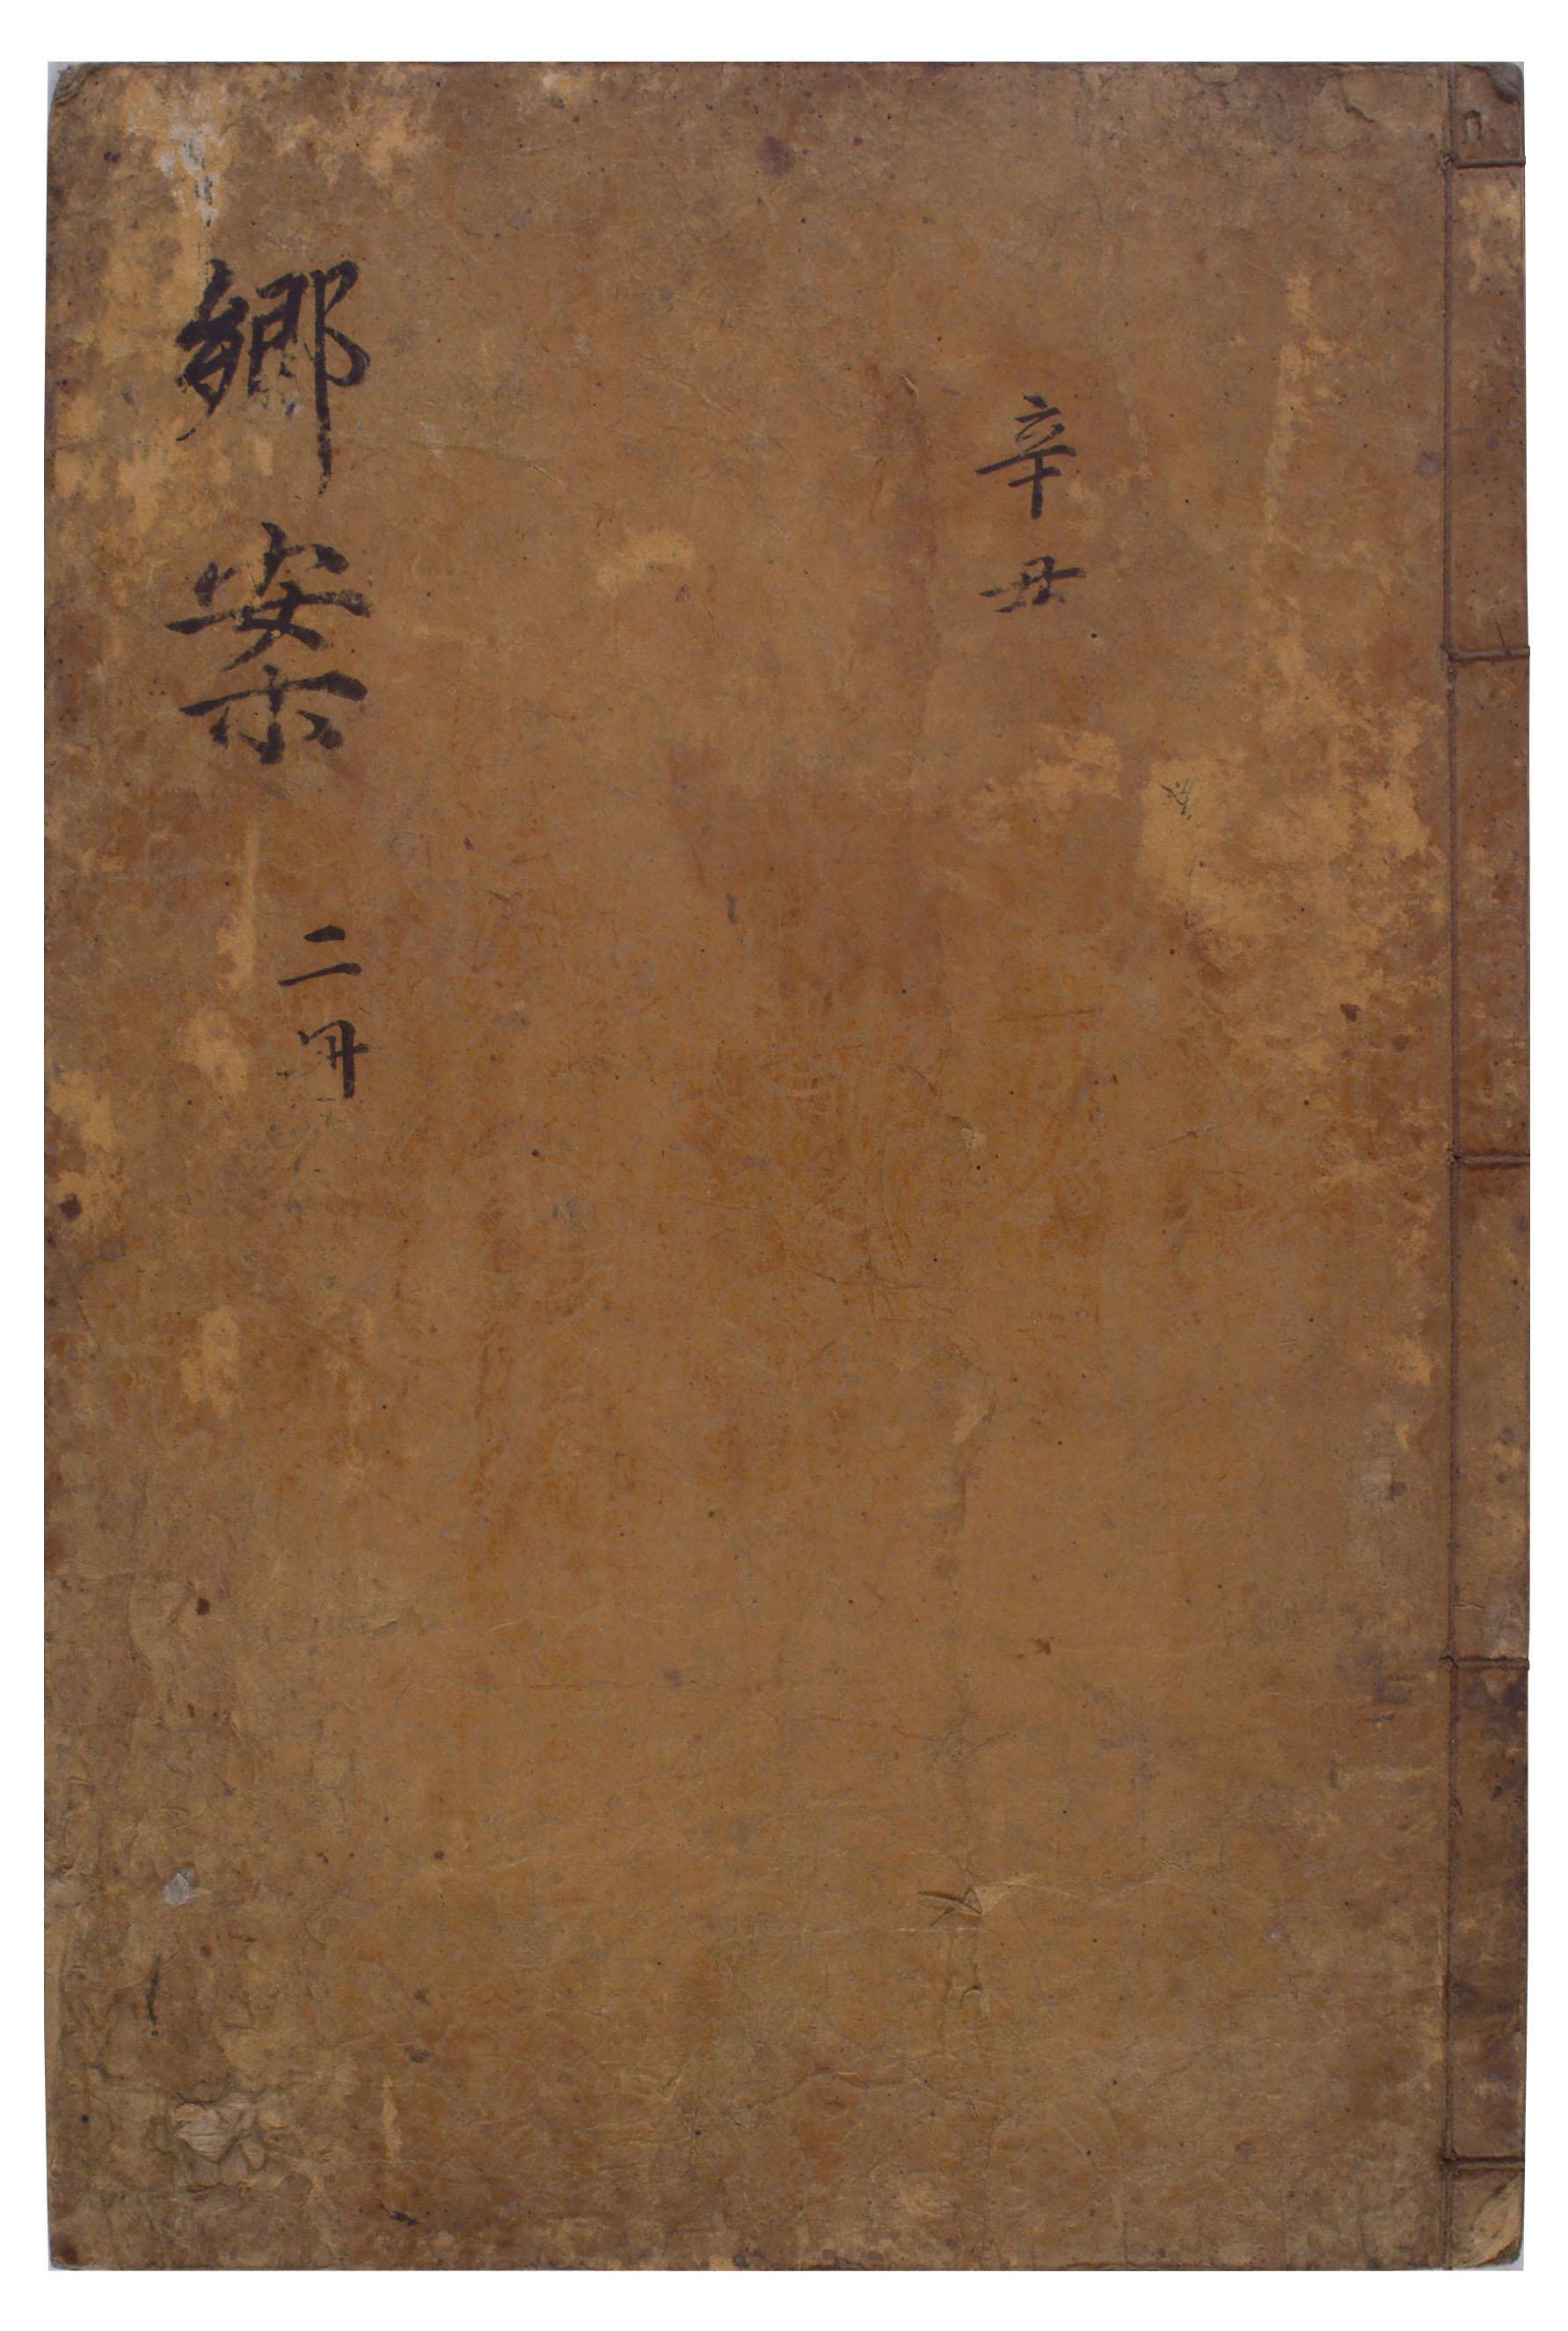 辛丑
鄕案 二冊